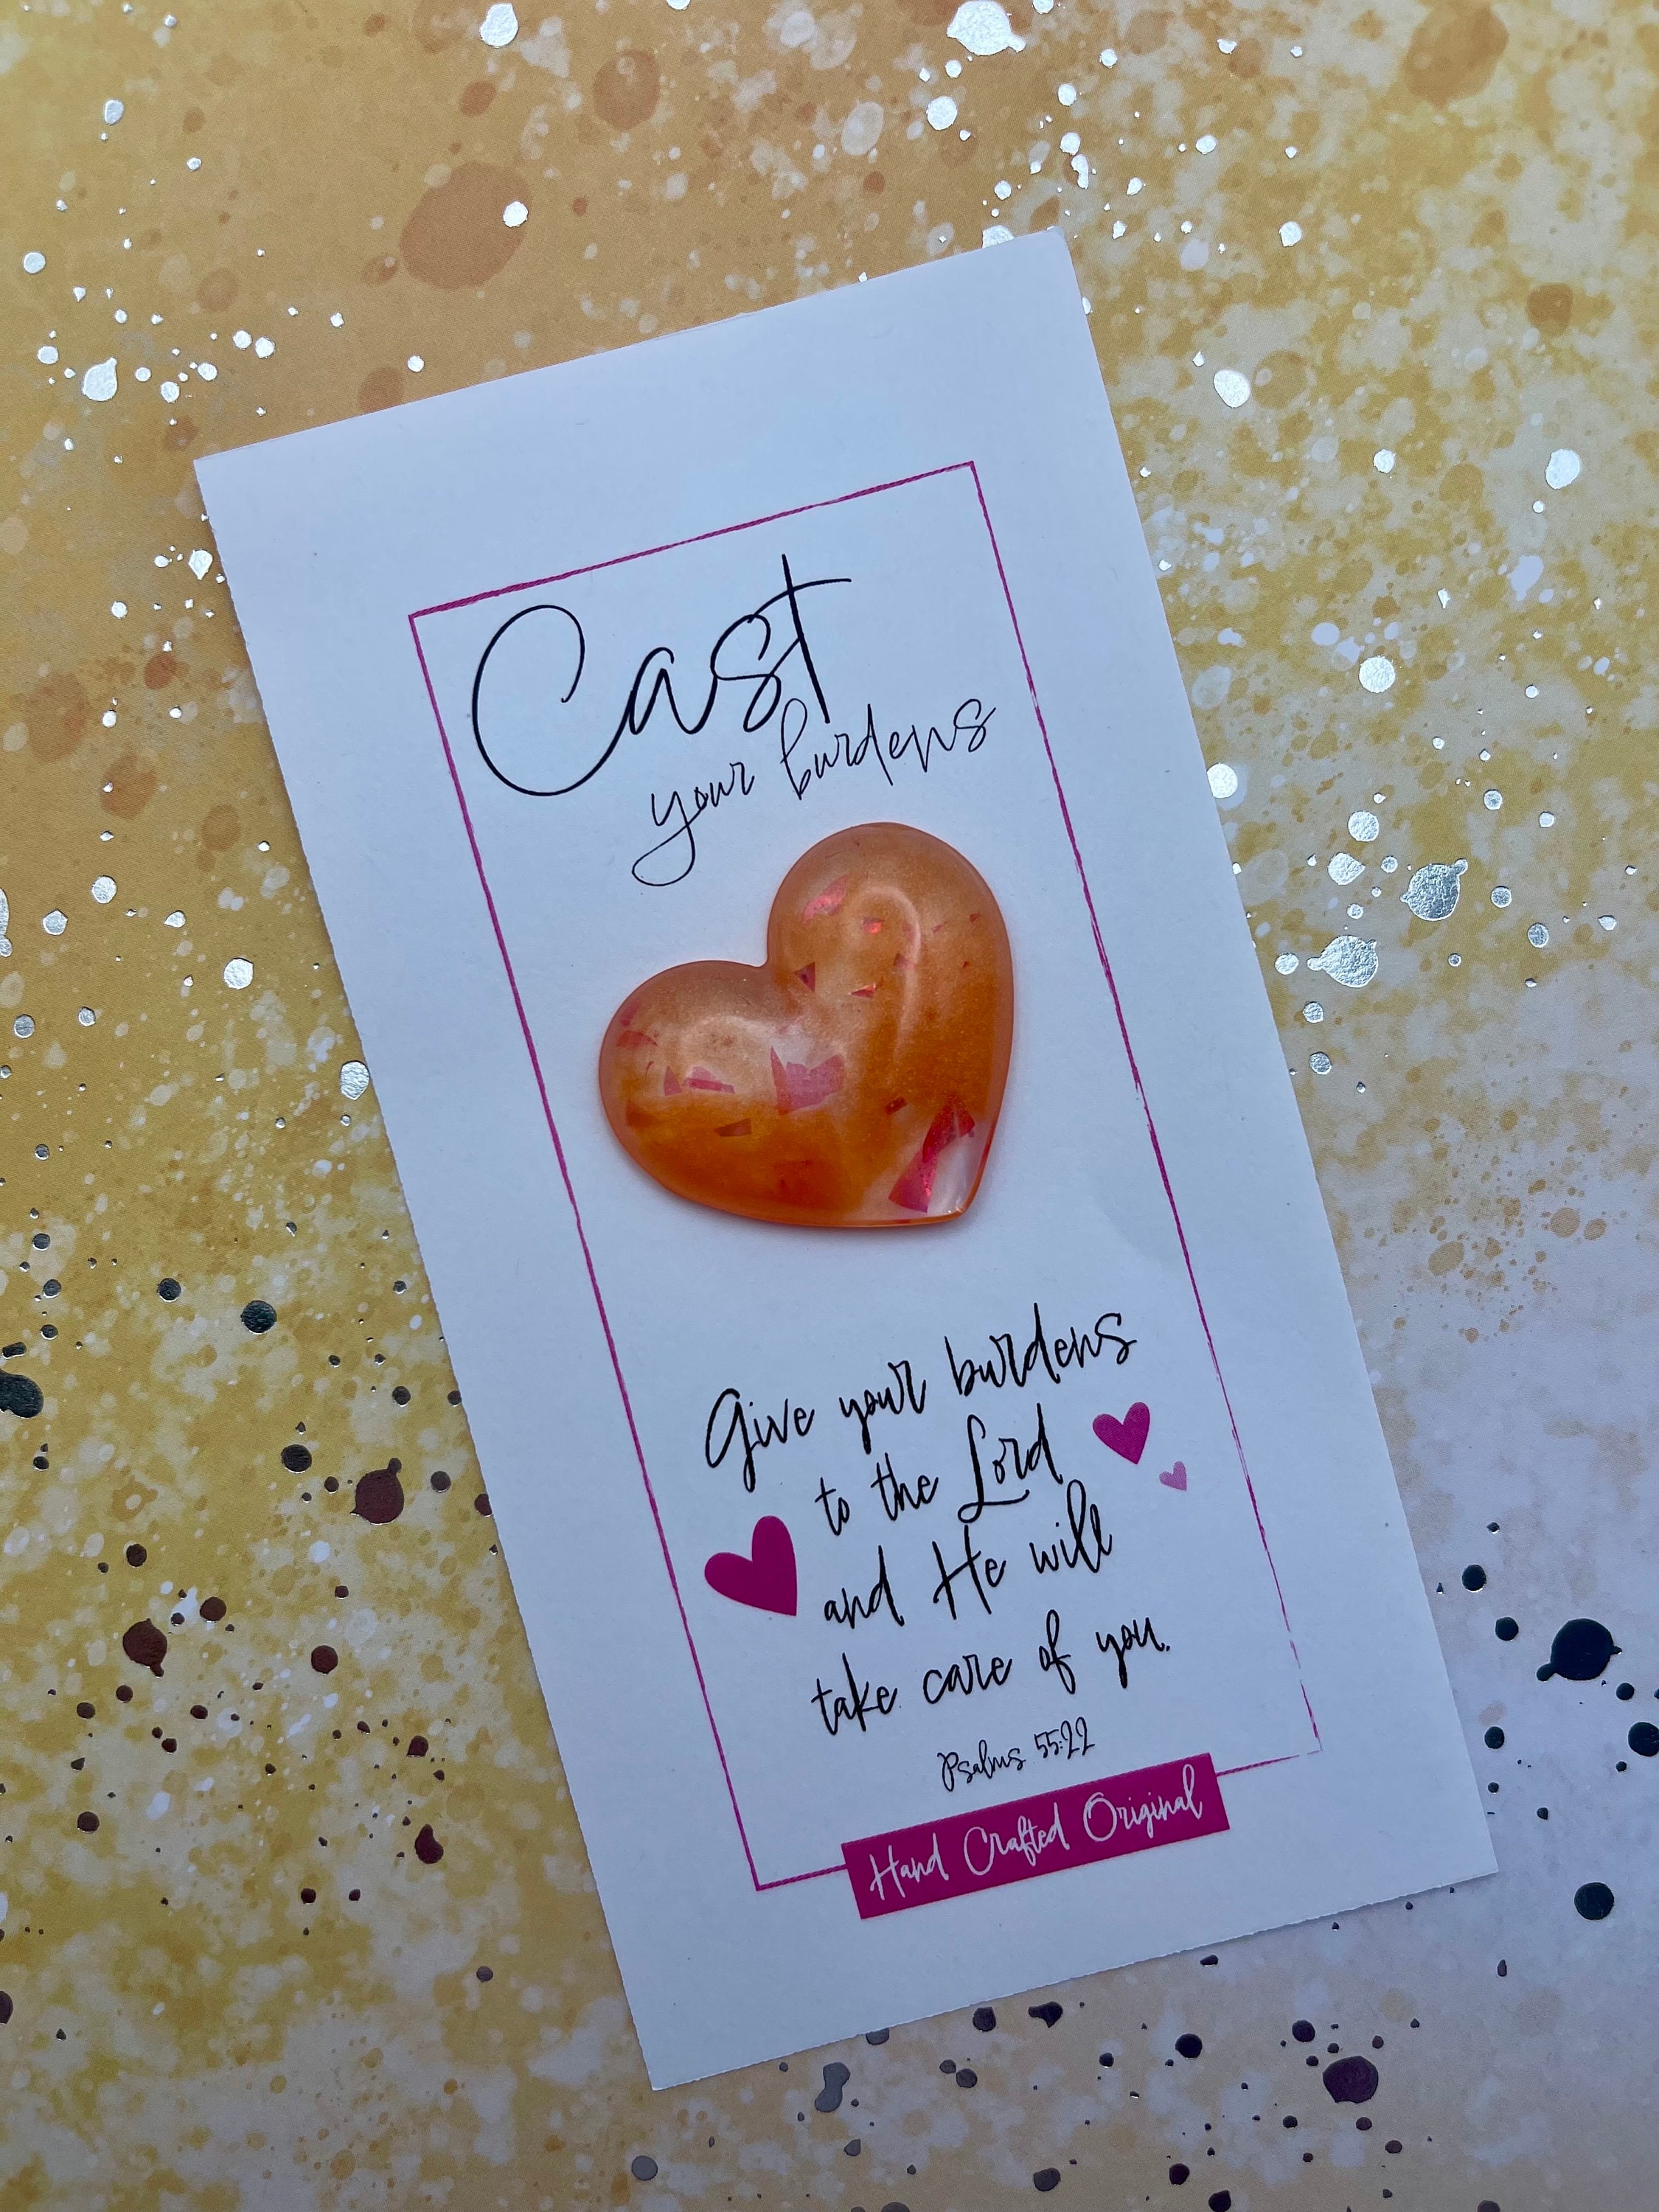 Cast
your burdens
Give your burdens
to the Lord
and He will
take care of you.
Psalms 55:22
Hand Crafted Original